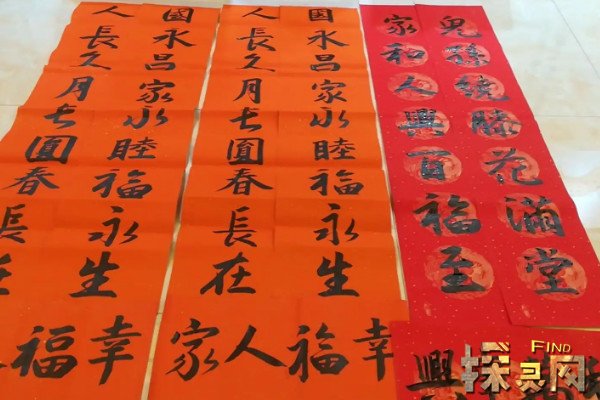 兒孫繞膝花滿堂
家和人興百福至
興
國永昌家永睦福永生
人長久月长圓春長在
幸福人家
國永昌家永睦福永生
人長久月长圓春長
幸福
FIND
探灵网